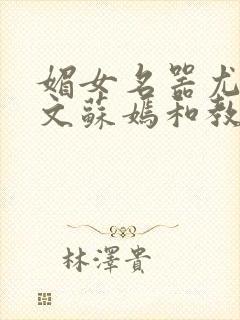 媚女名器尤
文蘇媽和教
林澤貴